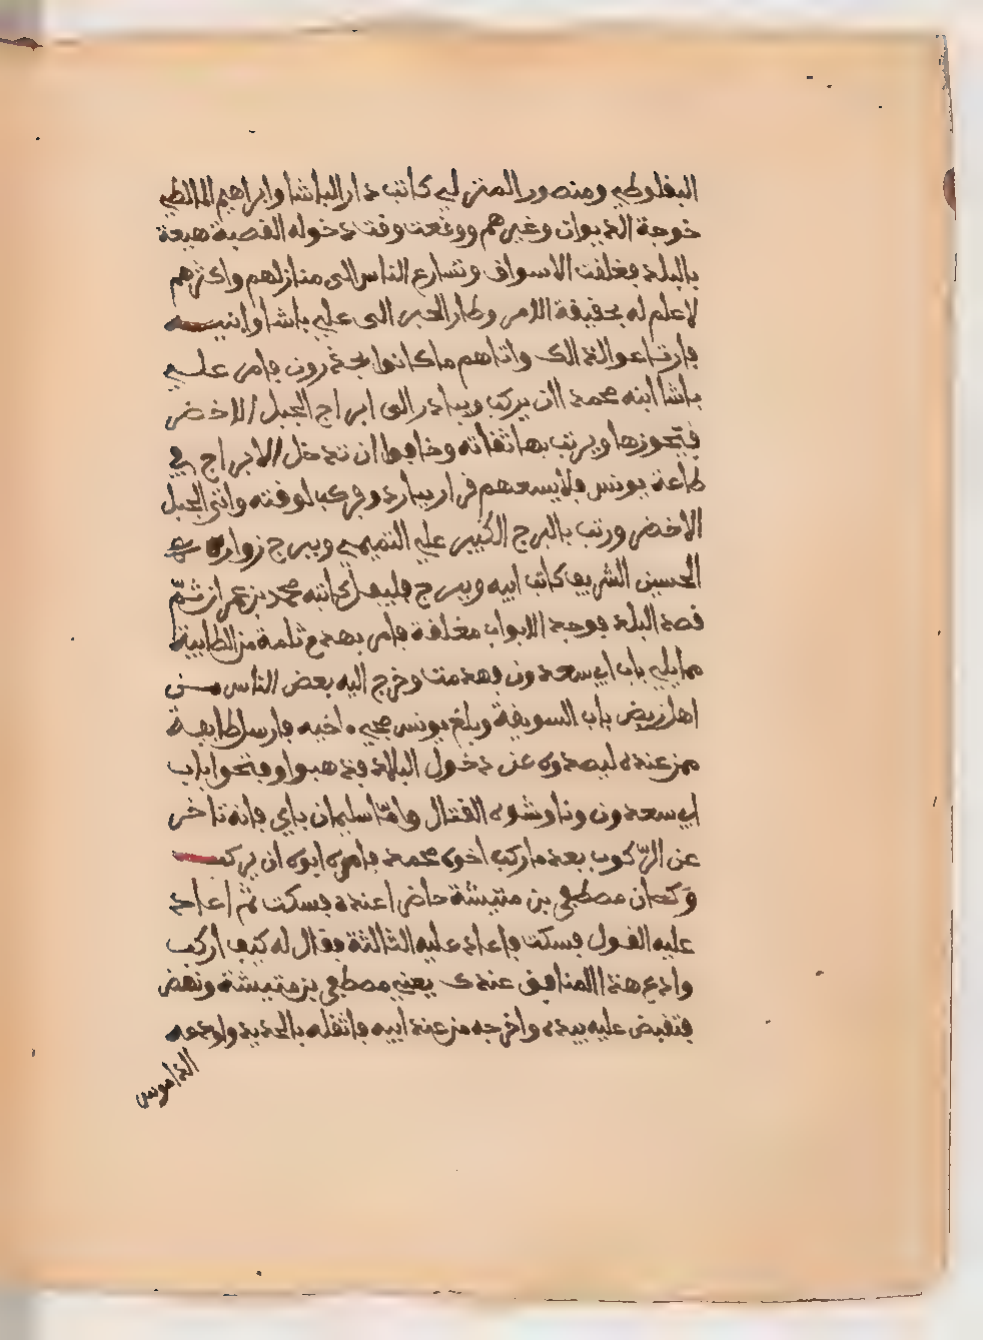 البفلوطي ومنصور المنزلي كاتب دار الباشا وابراهيم المالطي
خوجة الديوان وغيرهم ووقعت وقت دخوله القصبة هيعة
بالبلد فغلقت الاسواق وتسارع الناس الى منازلهم واكثرهم
لا علم له بحقيقة الامر وطار الخبر الى علي باشا وابنيه
فارتاعوا لذالك واتاهم ما كانوا يحذرون فامر علي
باشا ابنه محمدا ان يركب ويبادر الى ابراج الجبل الاخضر
فيحوزها ويرتب بها ثقاته وخافوا ان تدخل الابراج في
طاعة يونس فلا يسعهم قرار بباردو فركب لوقته واتى الجبل
الاخضر ورتب بالبرج الكبير علي التميمي وببرج زوارة
الحسين الشريف كاتب ابيه وببرج فليفل كاتبه محمد بن عمران ثمّ
قصد البلد فوجد الابواب مغلقة فامر بهدم ثلمة من الطابية
مما يلي باب ابي سعدون فهدمت وخرج اليه بعض الناس من
اهل ربض باب السويقة وبلغ يونس مجيء اخيه فارسل طايفة
ممن عنده ليصدوه عن دخول البلاد فذهبوا وفتحوا باب
ابي سعدون وناوشوه القتال وامّا سليمان باي فانه تاخر
عن الرّكوب بعد ما ركب اخوه محمد فامره ابوه ان يركب
وكان مصطفى بن متيشة حاضرا عنده فسكت ثم اعاد
عليه القول فسكت فاعاد عليه الثالثة فقال له كيف اركب
وادع هذا المنافق عندك يعني مصطفى بن متيشة ونهض
فتقبض عليه بيده واخرجه من عند ابيه فاثقله بالحديد واودعه
الداموس